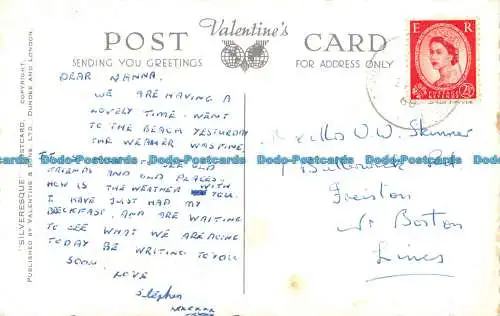 POST Valentine's CARD
SENDING YOU GREETINGS
FOR ADDRESS ONLY
E R
DEAR NANNA.
WE ARE HAVING A
LOVELY TIME. WENT
TO THE BEACH YESTURDAY
THE WEATHER WAS FINE.
Dodo-Postcards Dodo-Postcards Dodo-Postcards
FRIENDS AND OLD PLACES.
HOW IS THE WEATHER WITH YOU.
I HAVE JUST HAD MY
BECKFAST. AND ARE WAITING
TO SEE WHAT WE ARE DOING
TODAY BE WRITING TO YOU
SOON
LOVE
Stephen
W. Skinner
Freiston
Nr Boston
Lincs
"SILVERESQUE" POSTCARD. COPYRIGHT.
PUBLISHED BY VALENTINE & SONS LTD. DUNDEE AND LONDON.